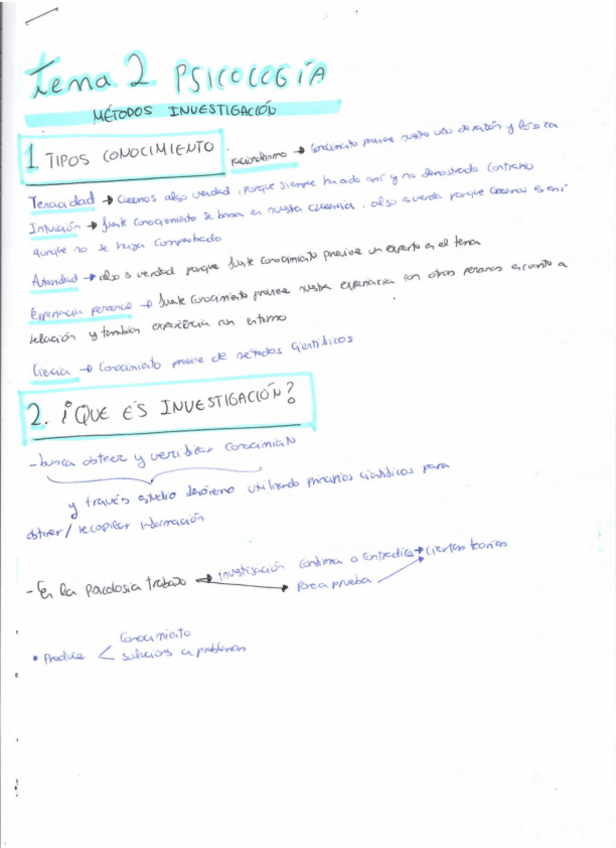 Tema 2 PSICOLOGÍA
MÉTODOS INVESTIGACIÓN
1 TIPOS CONOCIMIENTO
racionalismo → Conocimiento proviene nuestro uso de razón y lógica
Tenacidad → Creemos algo verdad, porque siempre ha sido así y no demostrado contrario
Intuición → fuente conocimiento se basa en nuestra creencia, algo es verdad porque creemos es así
aunque no se haya comprobado
Autoridad → algo es verdad porque fuente conocimiento proviene un experto en el tema
Experiencia personal → fuente conocimiento proviene nuestra experiencia con otras personas en cuanto a
relación y tambien experiencia con entorno
Ciencia → Conocimiento proviene de métodos científicos
2. ¿QUE ES INVESTIGACIÓN?
- busca obtener y verificar conocimiento
y través estudio fenómeno utilizando principios científicos para
obtener / recopilar información
- En la psicología trabajo → investigación confirma o contradice → ciertas teorías
→ Pone a prueba
• Produce < Conocimiento
soluciones a problemas